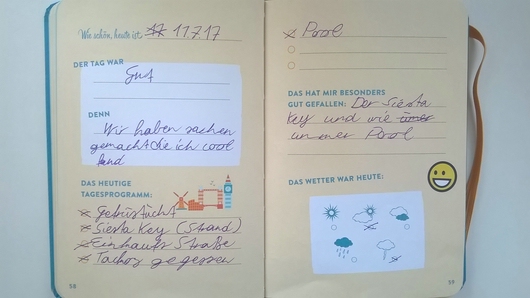 Wie schön, heute ist: 17 11.7.17
DER TAG WAR
Gut
DENN
Wir haben sachen
gemacht die ich cool
fand
DAS HEUTIGE
TAGESPROGRAMM:
Gefrüstückt
Siesta Key (Strand)
Einkaufs Straße
Tachos gegessen
58
Pool
DAS HAT MIR BESONDERS
GUT GEFALLEN: Der Siesta
Key und wie
unser Pool
DAS WETTER WAR HEUTE:
59